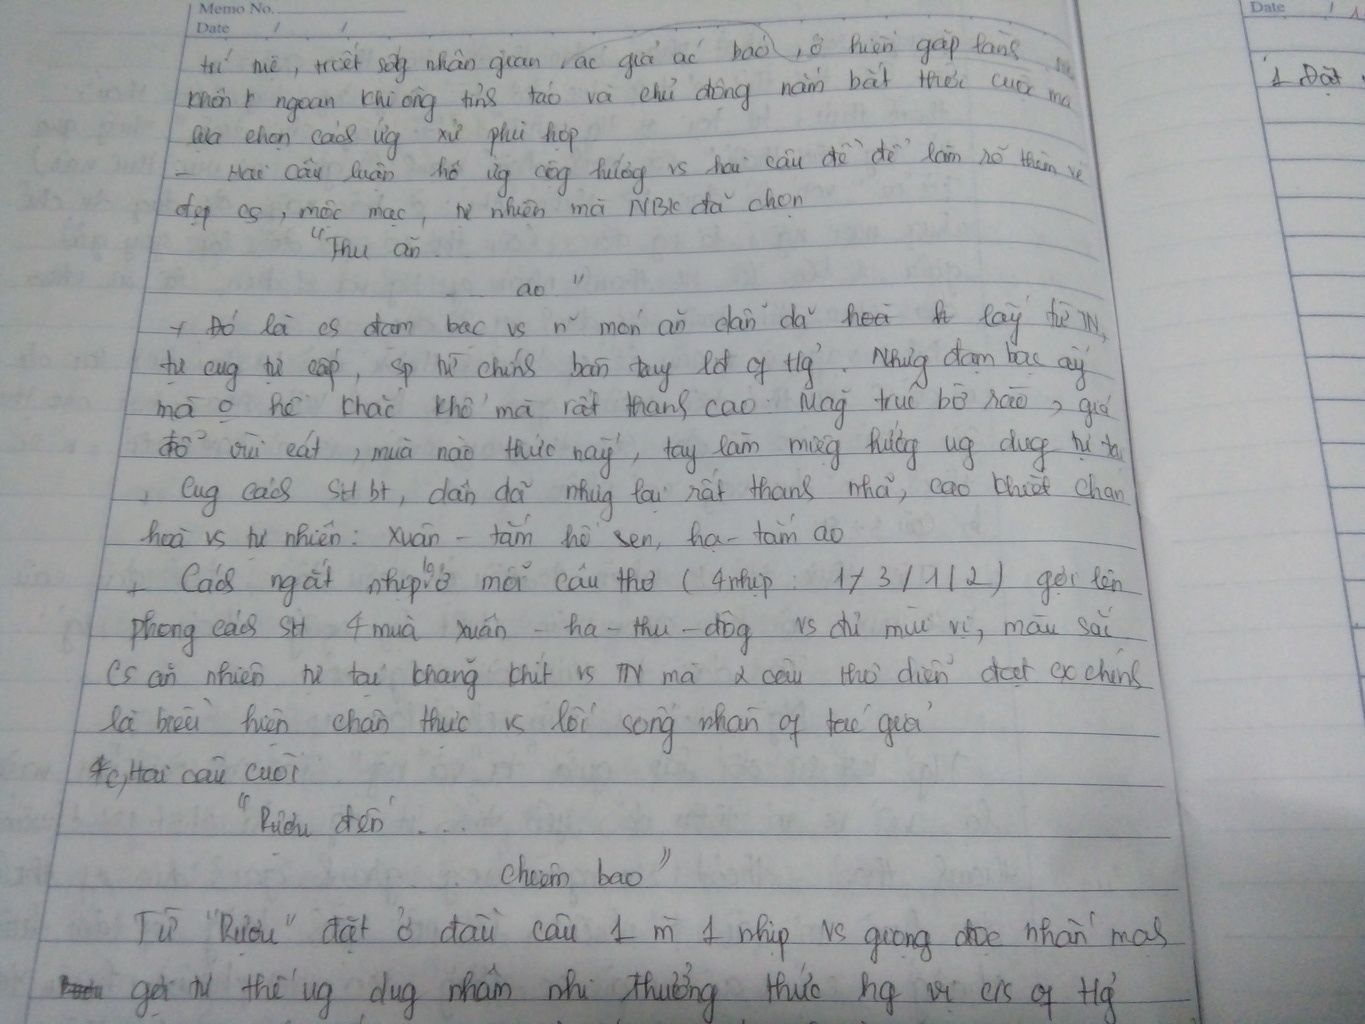 Memo No.
Date / /
Date / 1
1 Đặt
trí mê, triết số́g nhân gian ác giả ác báo, ở hiền gặp làng
khôn k ngoan khi ôg tỉng táo và chủ động nắm bắt thời cuộc mà
lựa chọn cácg ứg xử phù hợp
- Hai câu luận hô ứg côg hưởg vs hai câu đề để làm rõ thêm vẻ
đẹp cs, mộc mạc, tự nhiên mà NBK đã chọn
"Thu ăn
... ao"
+ Đó là cs đạm bạc vs n~ món ăn dân dã hoà lấy từ TN,
tự cug tự cấp, sp từ chíng bàn tay lđ of Hg'. Nhưg đạm bạc ấy
mà o hề khắc khổ mà rất thanh cao. Măg trúc bờ rào, giá
đỗ vùi cát, mùa nào thức nấy, tay làm miệg hưởg ug dug tự tại
, Cug cácg SH bt, dân dã nhưg lại rất thang nhã, cao khiết chan
hoà vs tự nhiên: Xuân - tắm hồ sen, hạ - tắm ao
+ Cácg ngắt nhịp ở mỗi câu thơ (4 nhịp: 1/3/1/2) gợi lên
phong cácg SH 4 mùa xuân - hạ - thu - đôg vs đủ mùi vị, màu sắc
Cs an nhiên tự tại khăng khít vs TN mà 2 câu thơ diễn đạt đc chíng
là biểu hiện chân thực vs lối sống nhàn of tác giả
c, Hai câu cuối
"Rượu đến ....
.. chiêm bao"
Từ "Rượu" đặt ở đầu câu 1 m 1 nhịp vs giọng đọc nhấn mạg
gợi tư thế ug dug nhâm nhi thưởng thức hg vị c/s of Hg'